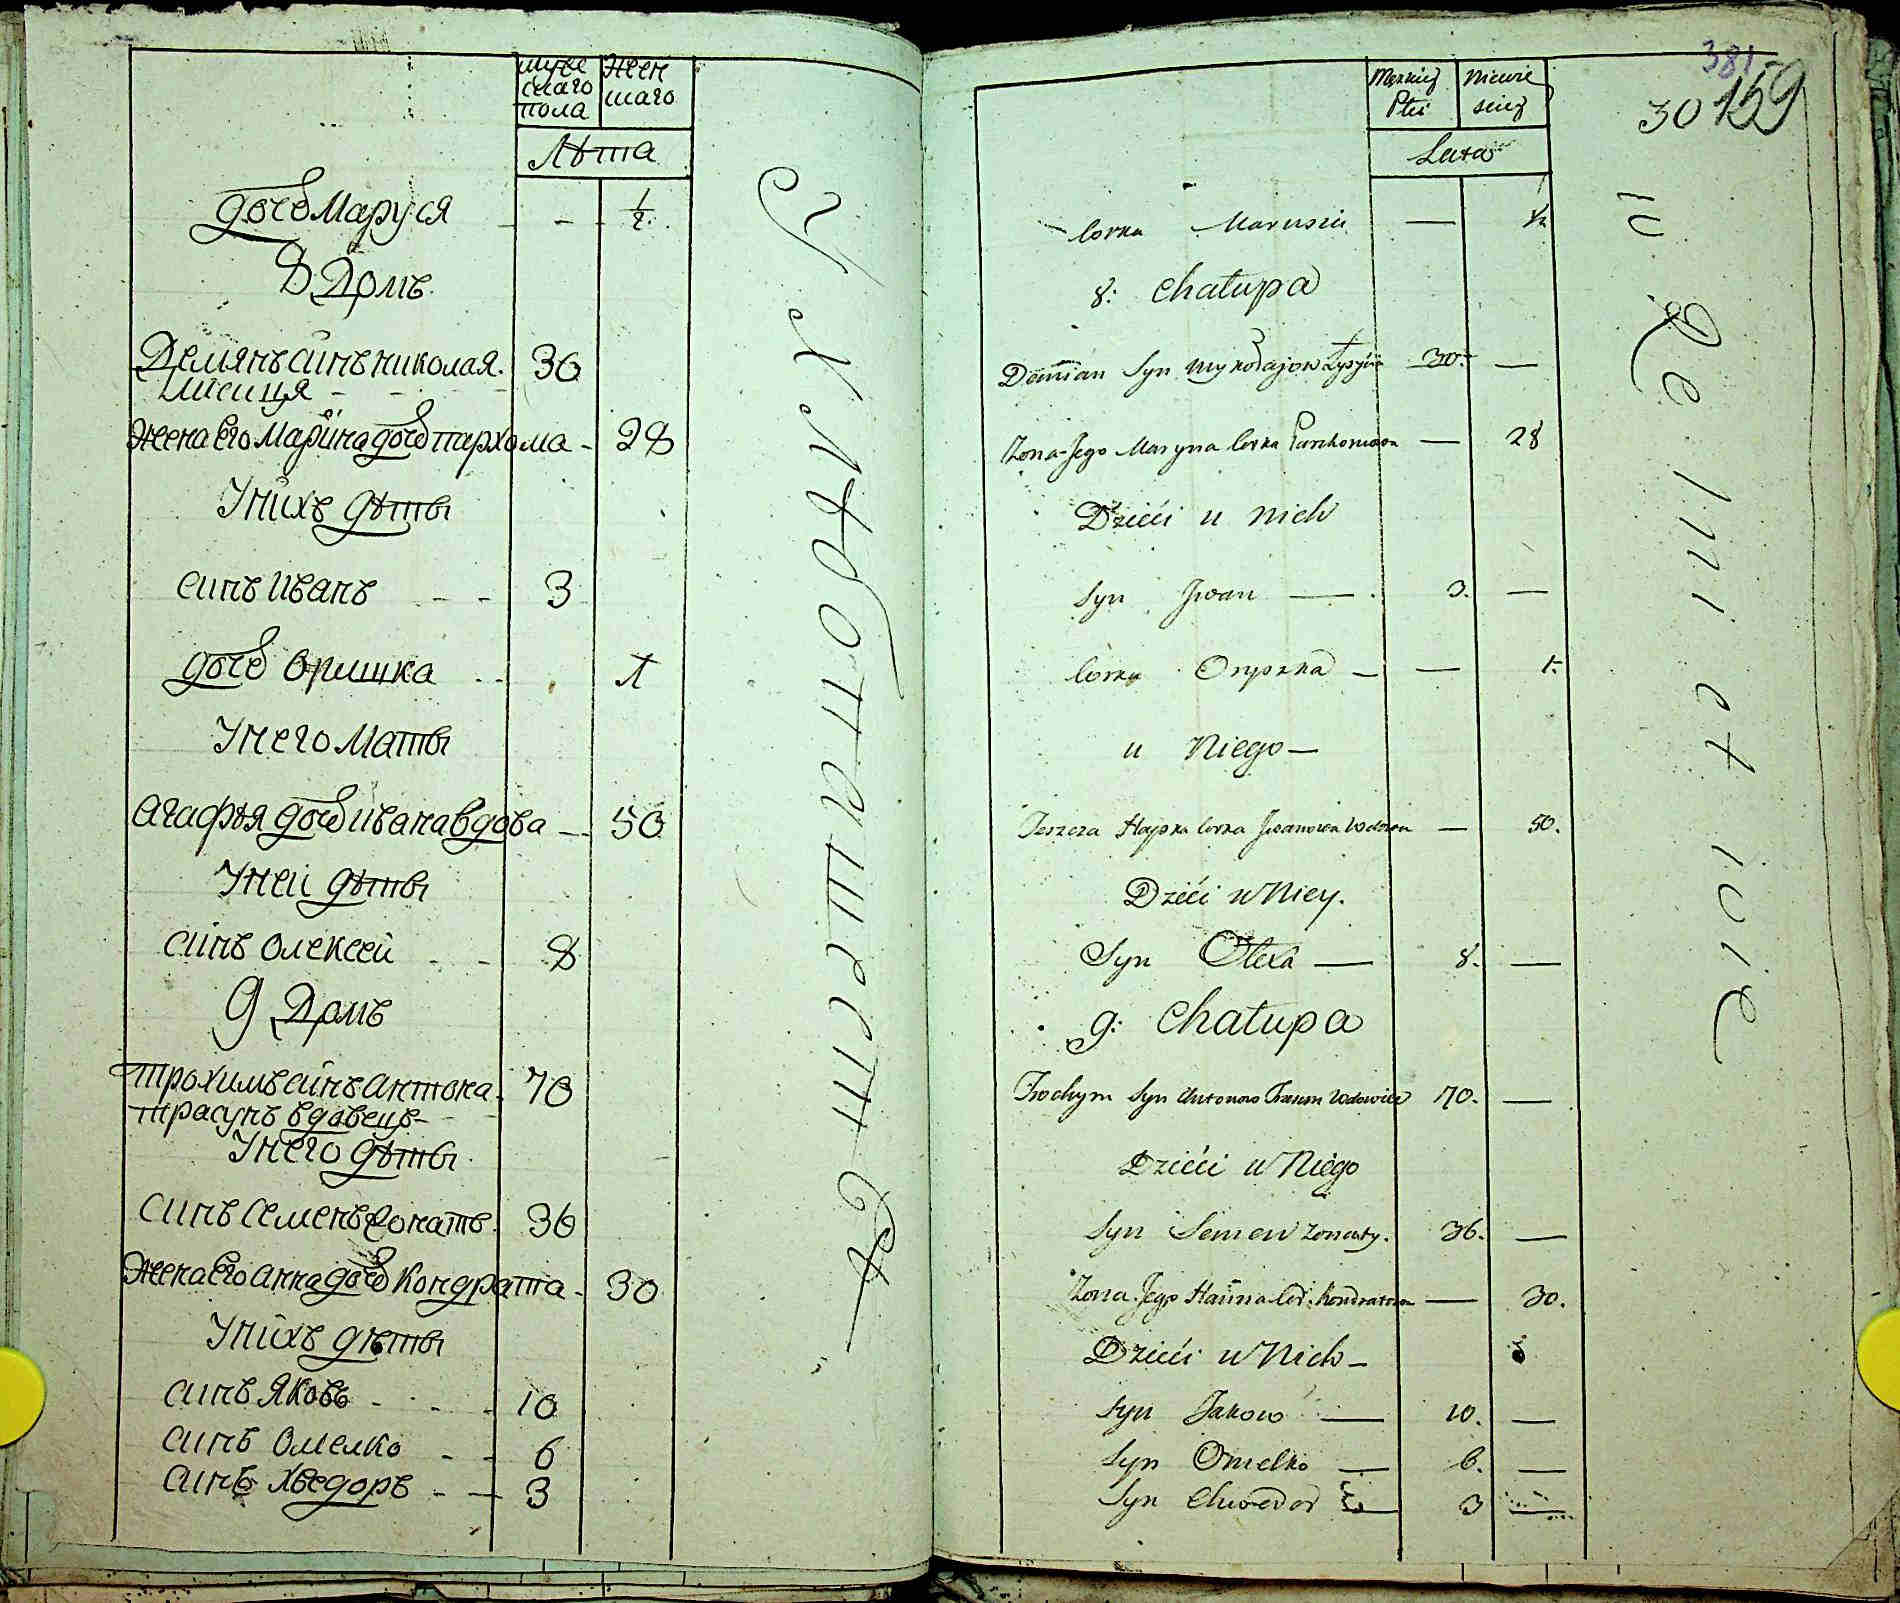 мужескаго пола
женскаго
Лѣта
дочь Маруся - - 1/2
8 Домъ
Демянъ синъ николая 30
Жена его Марина дочь пархома - 28
Унихъ дѣты
синъ иванъ - - 3
дочь Оришка - - 1
Унего Маты
Агафѣя дочь ивана вдова - 50
Уней дѣты
синъ Олексей - - 8
9 Домъ
трохимъ синъ Антона 70
трасунъ вдовецъ -
Унего дѣты
синъ Семенъ жонатъ 36
Жена его Анна дочь Кондрата - 30
Унихъ дѣты
синъ Яковъ - - 10
синъ Омелко - - 6
синъ Хведоръ - - 3
381
30 159
Męzkiey Płci
Niewiesciey
Lata
Corka Marusia — 1/2
8: Chałupa
Demian Syn Mykołajow 30. —
Zona Jego Maryna Corka Parchomowa — 28
Dzieći u nich
Syn Jwan — 3. —
Corka Oryszka — — 1.
u Niego —
Jeszcza Hapka Corka Jwanowa Wdowa — 50.
Dzieći u Niey.
Syn Olexa — 8. —
9: Chałupa
Trochym Syn Antonow Trasun Wdowiec 70. —
Dzieći u Niego
Syn Semen Zonaty. 36. —
Zona Jego Hanna Cor: Kondratowa — 30.
Dzieći u Nich —
Syn Jakow — 10. —
Syn Omelko — 6. —
Syn Chwedor — 3 —